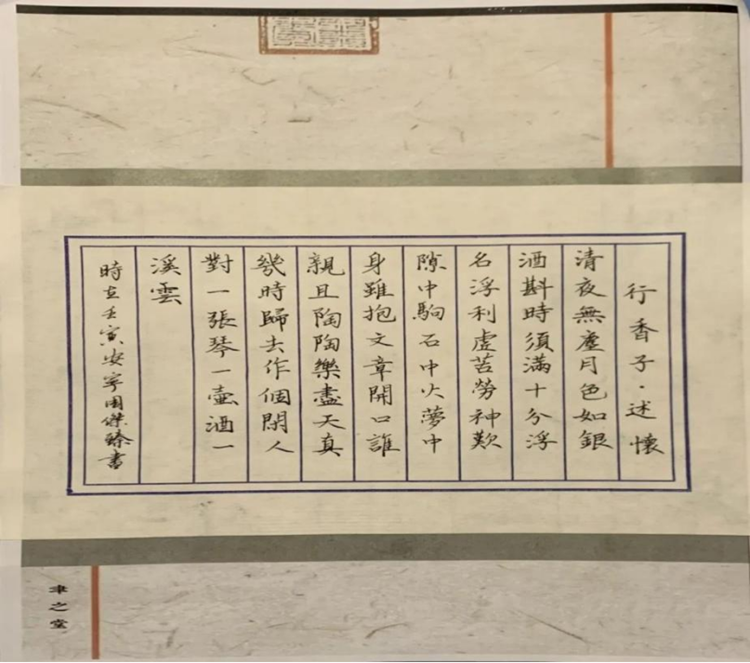 行香子·述懷
清夜無塵月色如銀
酒斟時須滿十分浮
名浮利虛苦勞神歎
隙中駒石中火夢中
身雖抱文章開口誰
親且陶陶樂盡天真
幾時歸去作個閑人
對一張琴一壺酒一
溪雲
時在壬寅安寧周傑臻書
聿之堂